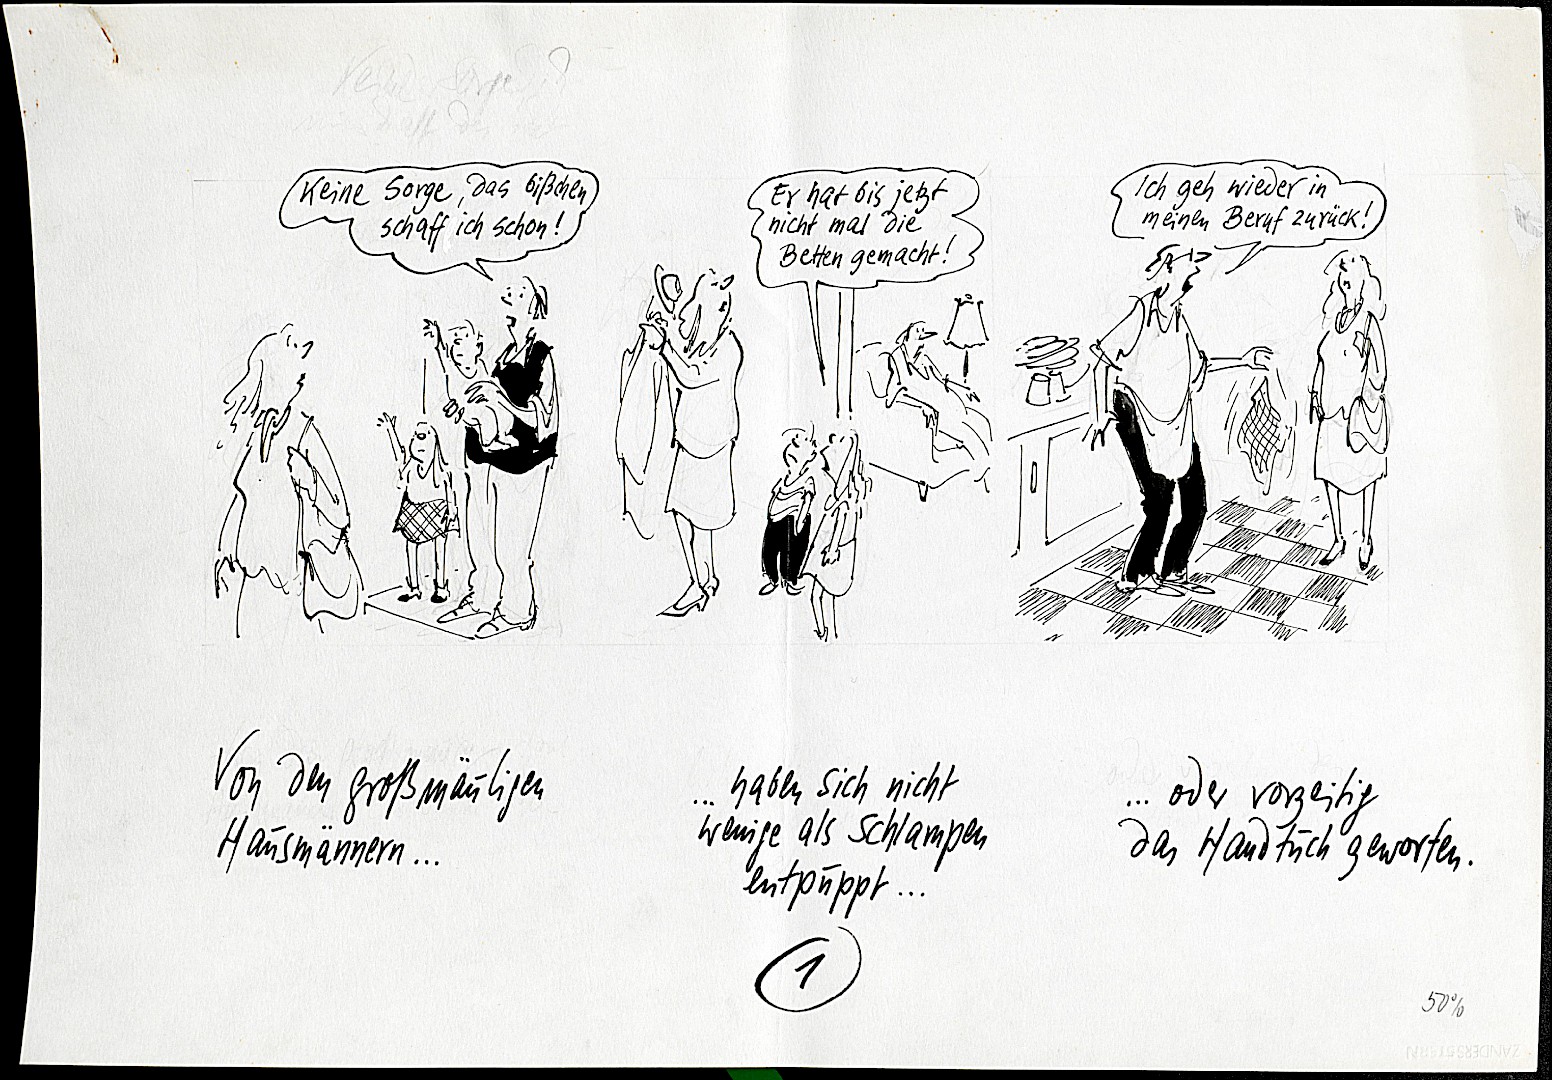 Keine Sorge, das bißchen
schaff ich schon!
Er hat bis jetzt
nicht mal die
Betten gemacht!
Ich geh wieder in
meinen Beruf zurück!
Von den großmäuligen
Hausmännern...
... haben sich nicht
wenige als Schlampen
entpuppt...
... oder vorzeitig
das Handtuch geworfen.
1
50%